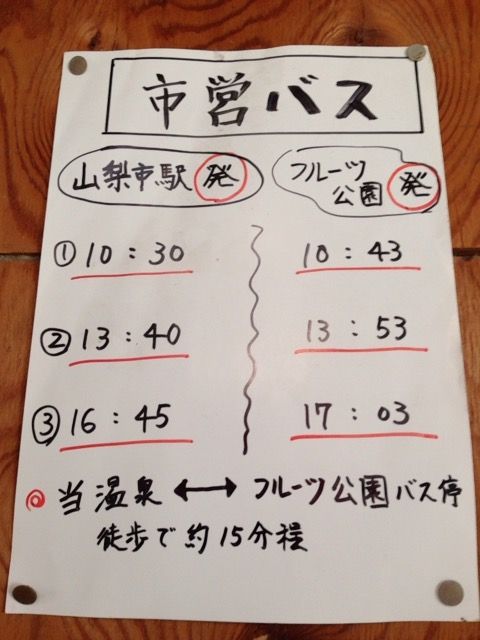 市営バス
山梨市駅 発
フルーツ
公園 発
① 10:30
10:43
② 13:40
13:53
③ 16:45
17:03
◎ 当温泉 ⟷ フルーツ公園バス停
徒歩で約15分程